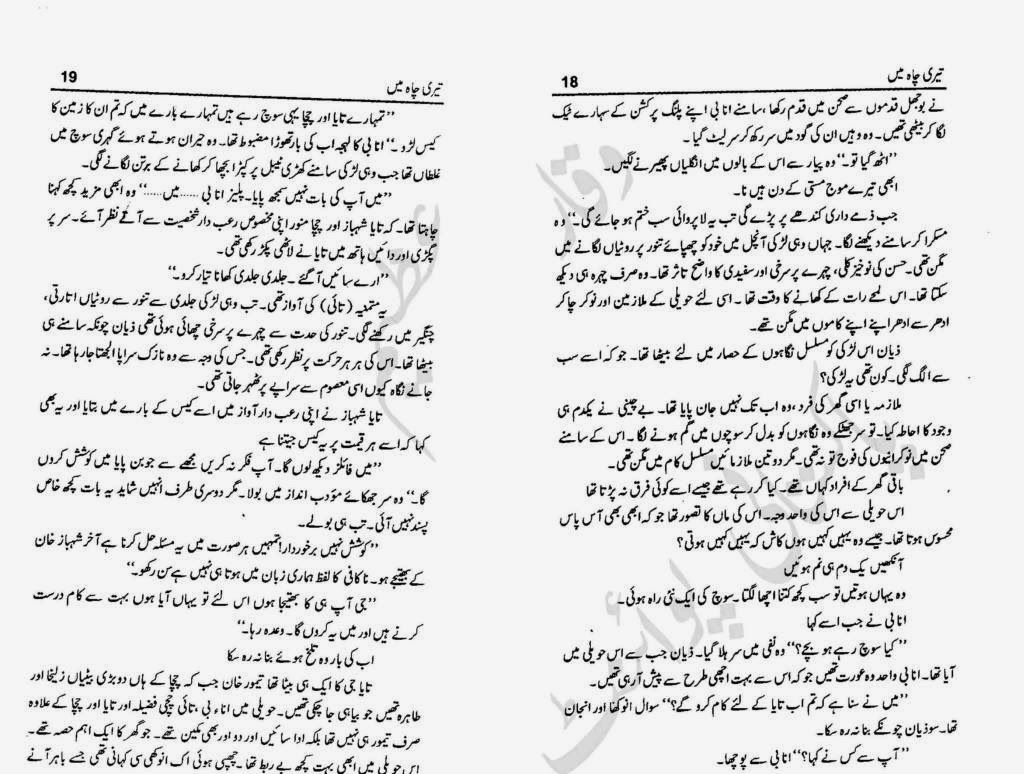 تیری چاہ میں 18
نے بوجھل قدموں سے صحن میں قدم رکھا، سامنے انا بی اپنے پلنگ پر کشن کے سہارے ٹیک
لگا کر بیٹھی تھیں۔ وہ وہیں ان کی گود میں سر رکھ کر سر لیٹ گیا۔
”اٹھ گیا تو۔“ وہ پیار سے اس کے بالوں میں انگلیاں پھیرنے لگیں۔
ابھی تیرے موج مستی کے دن ہیں نا۔
جب ذمے داری کندھے پر پڑے گی تب یہ لا پروائی سب ختم ہو جائے گی۔“ وہ
مسکرا کر سامنے دیکھنے لگا۔ جہاں وہی لڑکی آنچل میں خود کو چھپائے تنور پر روٹیاں لگانے میں
مگن تھی۔ حسن کی نوخیز کلی، چہرے پر سرخی اور سفیدی کا واضح تاثر تھا۔ وہ صرف چہرہ ہی دیکھ
سکتا تھا۔ اس لمحے رات کے کھانے کا وقت تھا۔ اسی لئے حویلی کے ملازمین اور نوکر چاکر
ادھر سے ادھر اپنے اپنے کاموں میں مگن تھے۔
ذیان اس لڑکی کو مسلسل نگاہوں کے حصار میں لئے بیٹھا تھا۔ جو کہ اسے سب
سے الگ لگی۔ کون تھی یہ لڑکی؟
ملازمہ یا اسی گھر کی فرد، وہ اب تک نہیں جان پایا تھا۔ بے چینی نے یکدم ہی
وجود کا احاطہ کیا۔ تو سر جھٹکے وہ نگاہوں کو بدل کر سوچوں میں گم ہونے لگا۔ اس کے سامنے
صحن میں نوکرانیوں کی فوج تو نہ تھی۔ مگر دو تین ملازمائیں مسلسل کام میں مگن تھی۔
باقی گھر کے افراد کہاں تھے۔ کیا کر رہے تھے جیسے اسے کوئی فرق نہ پڑتا تھا
اس حویلی سے اس کی واحد وجہ۔ اس کی ماں کا تصور تھا جو کہ ابھی بھی آس پاس
محسوس ہوتا تھا۔ جیسے وہ یہیں کہیں ہوں کاش کہ یہیں کہیں ہوتی؟
آنکھیں یک دم ہی نم ہوئیں
وہ یہاں ہوتیں تو سب کچھ کتنا اچھا لگتا۔ سوچ کی ایک نئی راہ ہوئی۔
انا بی نے جب اسے کہا
”کیا سوچ رہے ہو بچے؟“ وہ نفی میں سر ہلا گیا۔ ذیان جب سے اس حویلی میں
آیا تھا۔ انا بی واحد وہ عورت تھیں جو کہ اس سے بہت اچھی طرح سے پیش آ رہی تھیں۔
”میں نے سنا ہے کہ تم اب تایا کے لئے کام کرو گے؟“ سوال انوکھا اور انجان
تھا۔ سو ذیان چونکے بنا نہ رہ سکا۔
”آپ سے کس نے کہا؟“ انا بی سے پوچھا۔
تیری چاہ میں 19
”تمہارے تایا اور چچا یہی سوچ رہے ہیں تمہارے بارے میں کہ تم ان کا زمین کا
کیس لڑو۔“ انا بی کا لہجہ اب کی بار تھوڑا مضبوط تھا۔ وہ حیران ہوتے ہوئے گہری سوچ میں
غلطاں تھا جب وہی لڑکی سامنے کھڑی ٹیبل پر کپڑا بچھا کر کھانے کے برتن لگانے لگی۔
”میں آپ کی بات نہیں سمجھ پایا۔ پلیز انا بی ......میں.....“ وہ ابھی مزید کچھ کہنا
چاہتا تھا۔ کہ تایا شہباز اور چچا منور اپنی مخصوص رعب دار شخصیت سے آتے نظر آئے۔ سر پر
پگڑی اور دائیں ہاتھ میں تایا نے لاٹھی پکڑ رکھی تھی۔
”ارے سائیں آ گئے۔ جلدی جلدی کھانا تیار کرو۔“
یہ (تائی) کی آواز تھی۔ تب وہی لڑکی جلدی سے تنور سے روٹیاں اتارتی،
چنگیر میں رکھنے لگی۔ تنور کی حدت سے چہرے پر سرخی چھائی ہوئی تھی ذیان چونکہ سامنے ہی
بیٹھا تھا۔ اس کی ہر ہر حرکت پر نظر رکھی تھی۔ جس کی وجہ سے وہ نازک سراپا الجھتا جا رہا تھا۔ نہ
جانے نگاہ کیوں اسی معصوم سے سراپے پر ٹھہر جاتی تھی۔
تایا شہباز نے اپنی رعب دار آواز میں اسے کیس کے بارے میں بتایا اور یہ بھی
کہا کہ اسے ہر قیمت پر یہ کیس جیتنا ہے
”میں فائلز دیکھ لوں گا۔ آپ فکر نہ کریں مجھے سے جو بن پایا میں کوشش کروں
گا۔“ وہ سر جھکائے مؤدب انداز میں بولا۔ مگر دوسری طرف انہیں شاید یہ بات کچھ خاص
پسند نہیں آئی۔ تب ہی بولے۔
”کوشش نہیں برخوردار! تمہیں ہر صورت میں یہ مسئلہ حل کرنا ہے آخر شہباز خان
کے بھتیجے ہو۔ ناکافی کا لفظ ہماری زبان میں ہوتا ہی نہیں ہے سن رکھو۔“
”جی آپ ہی کا بھتیجا ہوں اس لئے تو یہاں آیا ہوں بہت سے کام درست
کرنے ہیں اور میں یہ کروں گا۔ وعدہ رہا۔“
اب کی بار وہ تلخ ہوئے بنا نہ رہ سکا
تایا جی کا ایک ہی بیٹا تھا تیمور خان جب کہ چچا کے ہاں دو بڑی بیٹیاں زلیخا اور
طاہرہ تھیں جو بیاہی جا چکی تھیں۔ حویلی میں اناء بی، تائی چچی فضیلہ اور تایا اور چچا کے علاوہ
صرف تیمور ہی نہیں تھا بلکہ ادا سائیں اور دو اور بھی مکین تھے۔ جو گھر کا ایک اہم حصہ تھے۔
اس حویلی میں ابھی بہت کچھ بے ربط تھا۔ چھپی ہوئی اک انوکھی سی کہانی تھی جسے باہر آنے
وقار عظیم
پاکستانی پوائنٹ